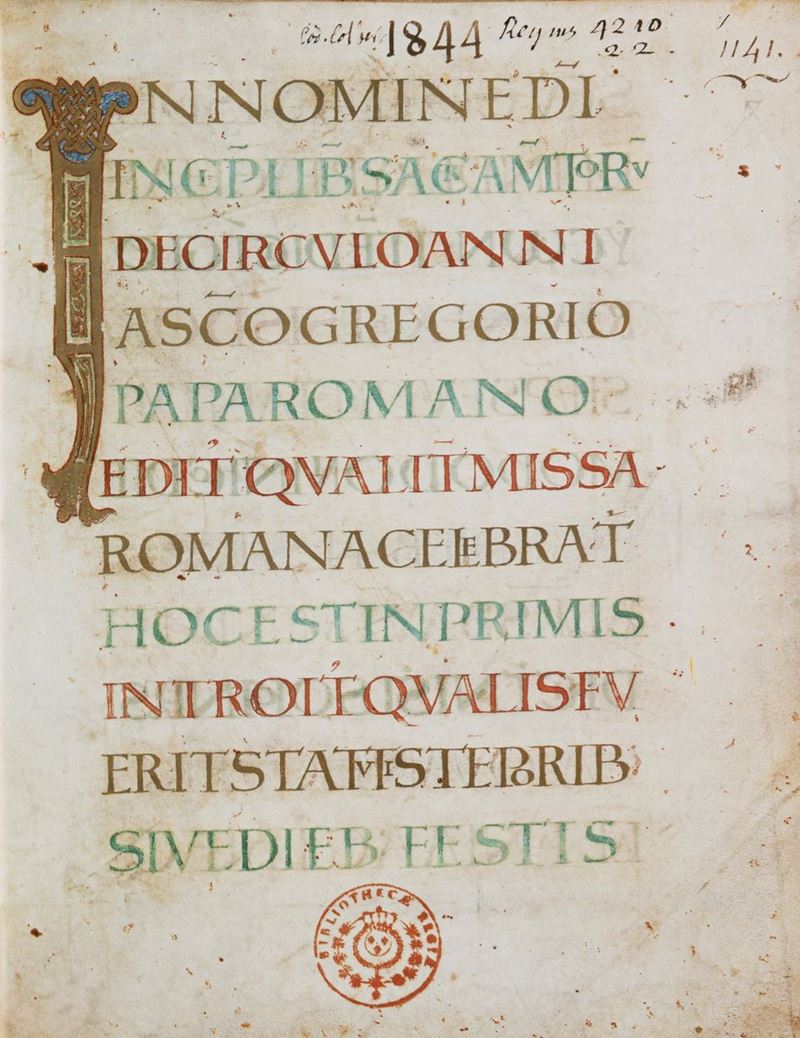 Cod. Colbert 1844 Regius 4210
22. 1141.
INNOMINEDĪ
INCIPLIB̄SACRAM̄TORV̄
DECIRCVLOANNI
ASC̄OGREGORIO
PAPAROMANO
EDITQVALIT̄MISSA
ROMANACELEBRAT
HOCESTINPRIMIS
INTROITQVALISFV
ERITSTATVTISTEPORIB
SIVEDIEB FESTIS
BIBLIOTHECÆ REGIÆ